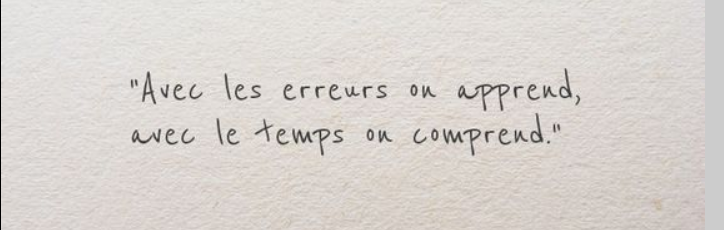 "Avec les erreurs on apprend,
avec le temps on comprend."